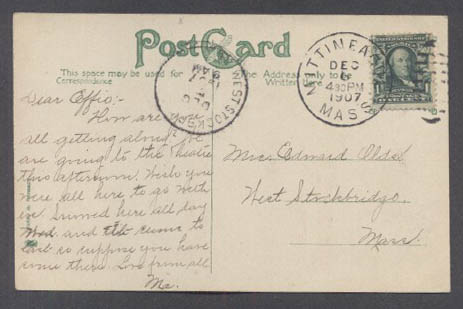 Post Card
This space may be used for
Correspondence
The Address only to be
Written Here
WEST STOCKBRIDGE
DEC
MITTINEAGUE
DEC
6
4 30 PM
1907
MASS
Dear Effie:-
How are you
all getting along? We
are going to the theatre
this afternoon. Wish you
were all here to go with
us. here all day
Wed. and
so suppose you have
some there. Love from all
Mrs. Edward Olds
West Stockbridge
Mass.